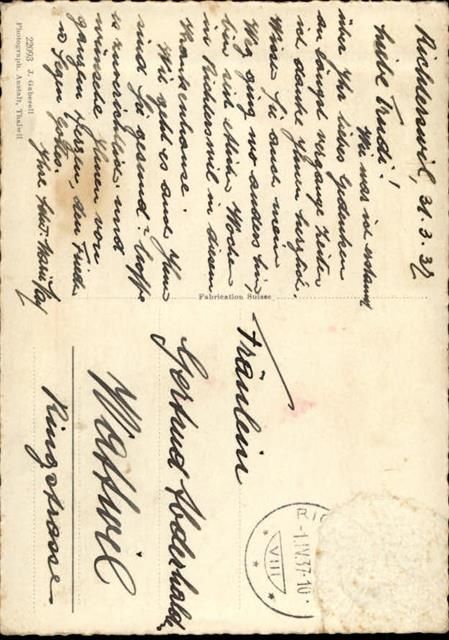 Richterswil, 31. 3. 37
Liebe Trudi!
Wie war ich erstaunt
über Ihr liebes Gedenken
an längst vergange Zeiten
und danke Ihnen herzlich.
Wissen Sie auch mein
Weg ging wo anders hin,
bin seit Wochen
in Richterswil in diesem
Krankenhause.
Wie geht es auch Ihnen
sind Sie gesund? hoffe
es zuversichtlich und
wünsche Ihnen von
ganzem Herzen, den Frieden
u Segen Gottes.
Ihre
22093 J. Gaberell
Photograph. Anstalt, Thalwil
Fabrication Suisse
Fräulein
Gertrud Abderhalden
Wattwil
Ringstrasse
RIC
-1.IV.37-10
VIII